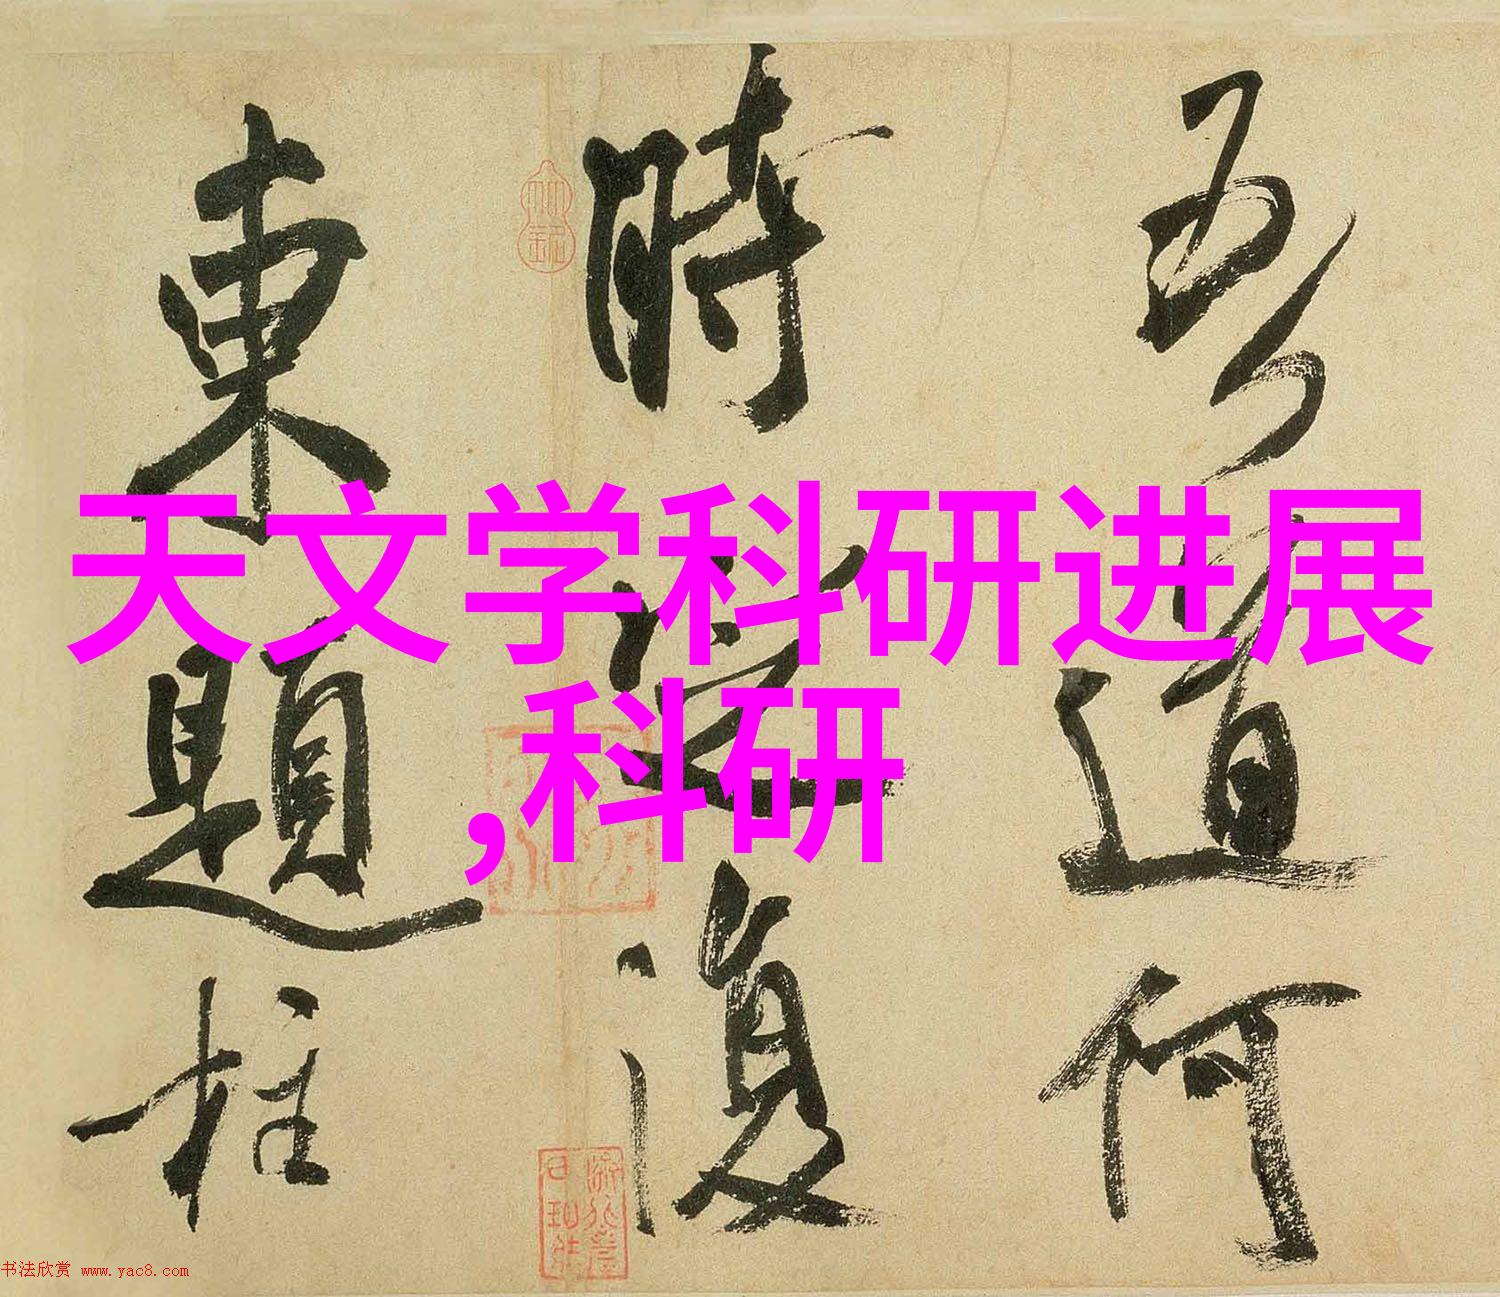 天文学科研进展
,科研
吾道何
時復
東題柱
书法欣赏 www.yac8.com